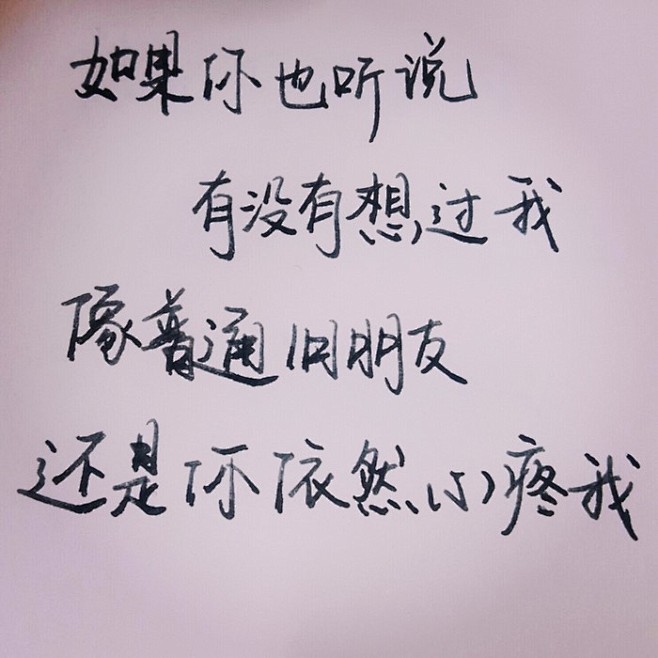 如果你也听说
有没有想过我
像普通旧朋友
还是你依然心疼我